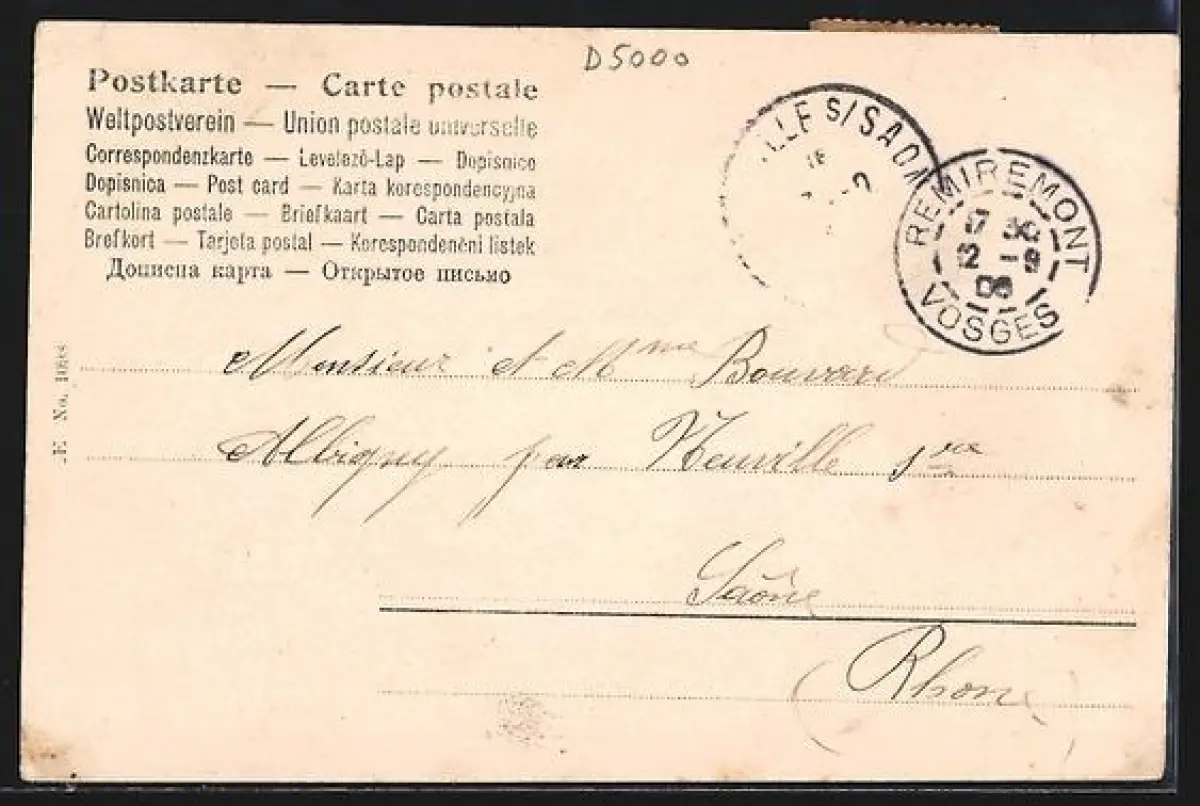 D5000
Postkarte — Carte postale
Weltpostverein — Union postale universelle
Correspondenzkarte — Levelező-Lap — Dopisnice
Dopisnica — Post card — Karta korespondencyjna
Cartolina postale — Briefkaart — Carta postala
Brefkort — Tarjeta postal — Korespondenční lístek
Дописна карта — Открытое письмо
S/SAON
REMIREMONT
17 30
12 - 9
VOSGES
No. 
Monsieur et Mme Bouvard
Albigny par Neuville s
Saône
Rhone